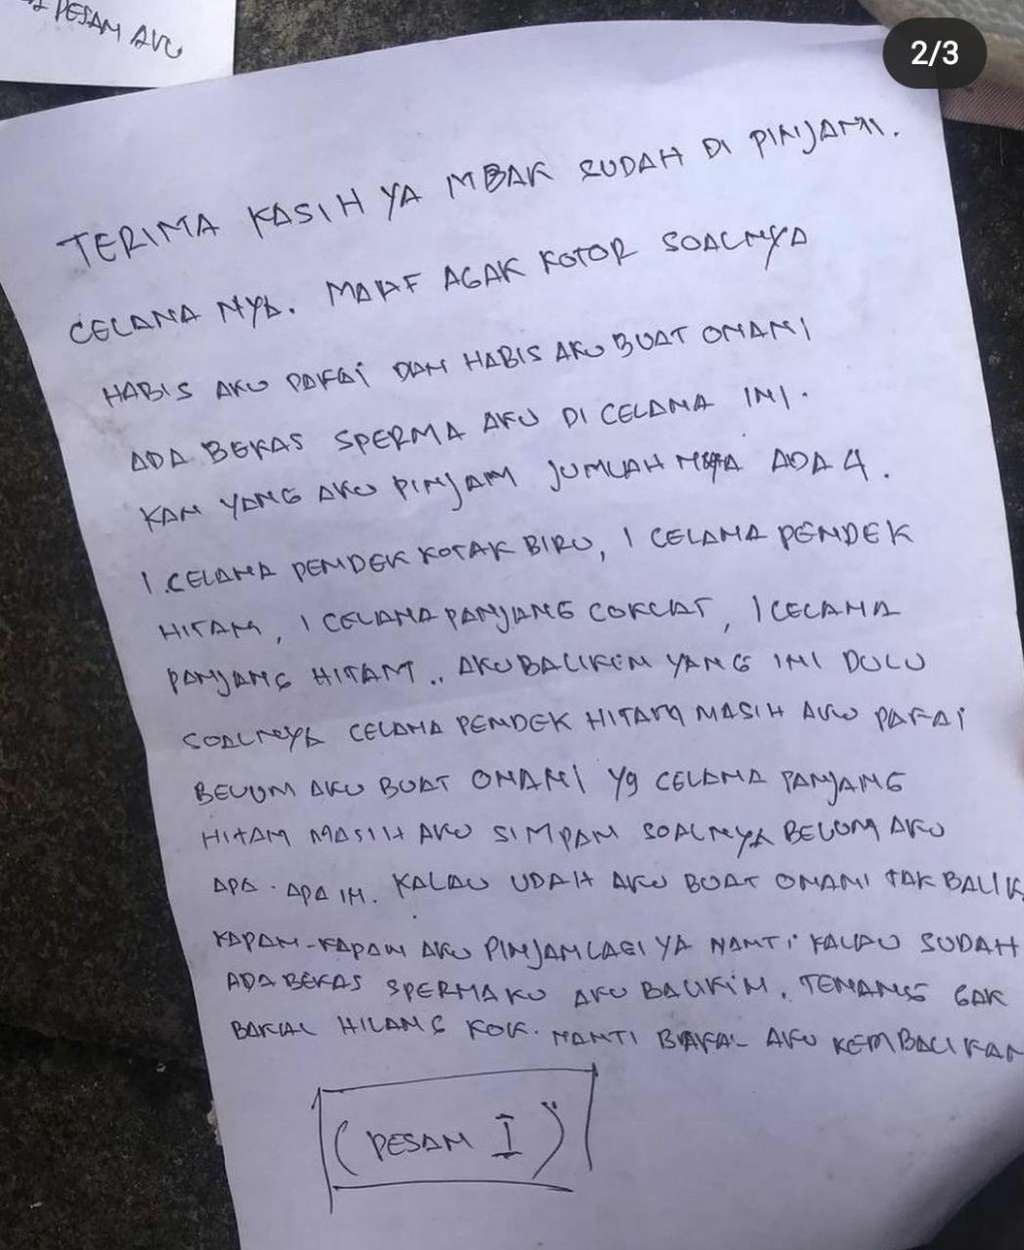 2/3
PESAN AKU
TERIMA KASIH YA MBAK SUDAH DI PINJAMI.
CELANA NYA. MAAF AGAK KOTOR SOALNYA
HABIS AKU PAKAI DAN HABIS AKU BUAT ONANI
ADA BEKAS SPERMA AKU DI CELANA INI.
KAN YANG AKU PINJAM JUMLAH NYA ADA 4.
1 CELANA PENDEK KOTAK BIRU, 1 CELANA PENDEK
HITAM, 1 CELANA PANJANG COKLAT, 1 CELANA
PANJANG HITAM.. AKU BALIKIN YANG INI DULU
SOALNYA CELANA PENDEK HITAM MASIH AKU PAKAI
BELUM AKU BUAT ONANI Yg CELANA PANJANG
HITAM MASIH AKU SIMPAN SOALNYA BELUM AKU
APA-APA IN. KALAU UDAH AKU BUAT ONANI TAK BALIK
KAPAN-KAPAN AKU PINJAM LAGI YA NANTI KALAU SUDAH
ADA BEKAS SPERMAKU AKU BALIKIN. TENANG GAK
BAKAL HILANG KOK. NANTI BAKAL AKU KEMBALIKAN
(PESAN I)